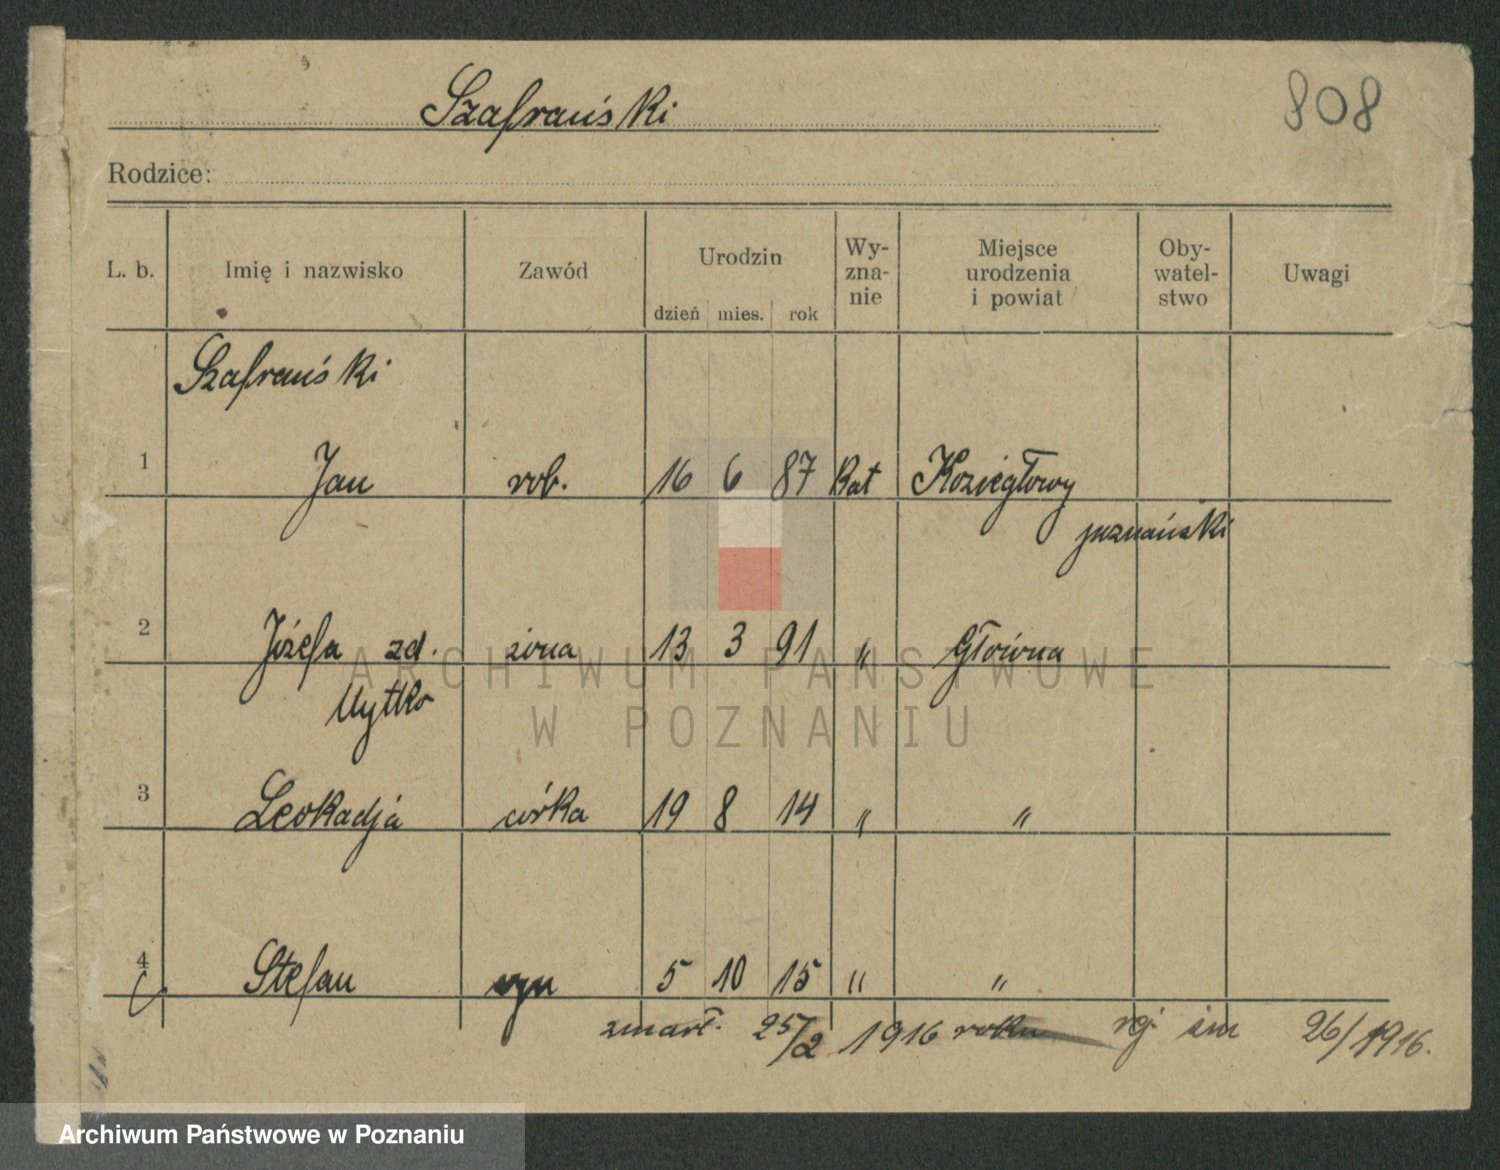 Szafrański 808
Rodzice:
L. b. Imię i nazwisko Zawód Urodzin dzień mies. rok Wy-zna-nie Miejsce urodzenia i powiat Oby-watel-stwo Uwagi
Szafrański
1 Jan rob. 16 6 87 kat Koziegłowy
poznański
2 Józefa zd. żona 13 3 91 " Główna
3 Leokadja córka 19 8 14 " "
4 Stefan syn 5 10 15 " "
zmarł. 25/2 1916 roku rej. śm 26/1916.
ARCHIWUM PAŃSTWOWE
W POZNANIU
Archiwum Państwowe w Poznaniu